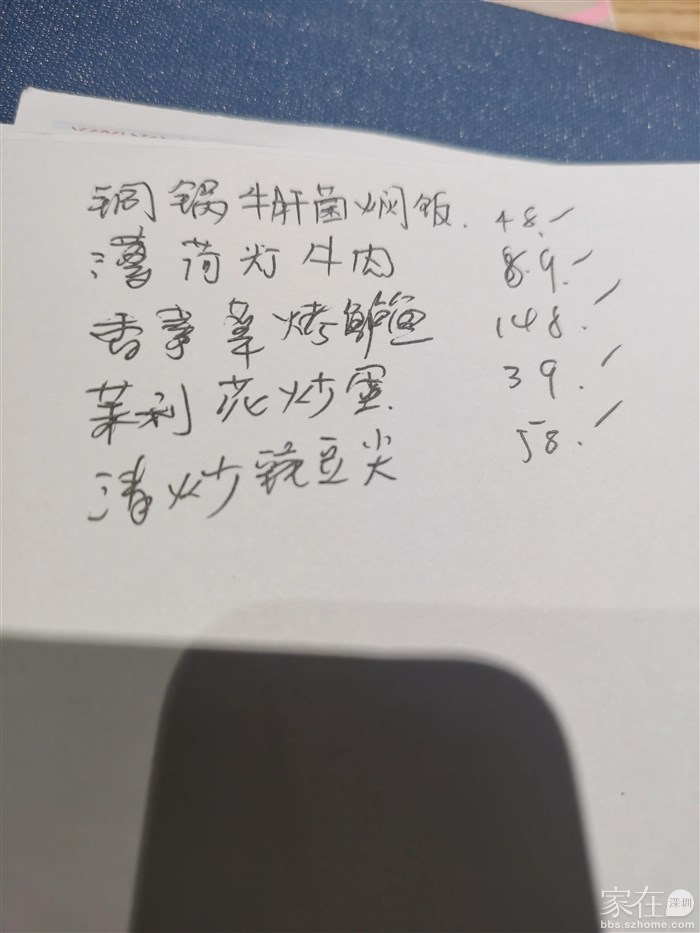 铜锅牛肝菌焖饭. 48.
薄荷炒牛肉 89.
香茅草烤鲈鱼 148.
茉莉花炒蛋. 39.
清炒豌豆尖 58.
家在 深圳
bbs.szhome.com